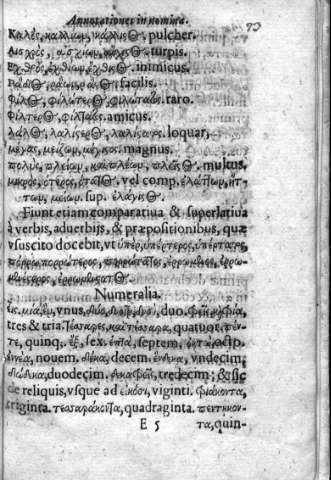 Annotationes in nomina. 73
Καλὸς, καλλίων, κάλλιςος, pulcher.
Αἰσχρὸς, αἰσχίων, αἴσχιςος, turpis.
Ἐχθρὸς, ἐχθίων, ἔχθιςος, inimicus.
facilis.
φίλος, φιλώτερος, φιλώτατος, raro.
φίλτερος, φίλτατος, amicus.
λάλος, λαλίςερος, λαλίςατος, loquax,
μέγας, μείζων, μέγιςος, magnus.
πολὺς, πλείων, καὶ πλέων, πλεῖςος, multus,
μικρὸς, ότερος, ότατος, vel comp. ἐλάττων, ἥτ-
των, μείων, sup. ἐλάχιςος.
Fiunt etiam comparatiua & superlatiua
à verbis, aduerbijs, & præpositionibus, quæ
vsus cito docebit, vt ὑπὲρ, ὑπέρτερος, ὑπέρτατος,
πόῤῥω, ποῤῥώτερος, ποῤῥώτατος, ἐῤῥωμένος, ἐῤῥω-
μενέςερος, ἐῤῥωμενέςατος.
Numeralia.
εἷς, μία, ἓν, vnus, δύο, duo. τρεῖς, τρία,
tres & tria. τέσσαρες, καὶ τέσσαρα, quatuor, πέν-
τε, quinq;. ἓξ, sex. ἑπτὰ, septem, ὀκτὼ, octo.
ἐννέα, nouem. δέκα, decem. ἕνδεκα, vndecim,
δώδεκα, duodecim. δεκατρεῖς, tredecim; & sic
de reliquis, vsque ad εἴκοσι, viginti. τριάκοντα,
triginta. τεσσαράκοντα, quadraginta. πεντήκον-
E 5 τα, quin-